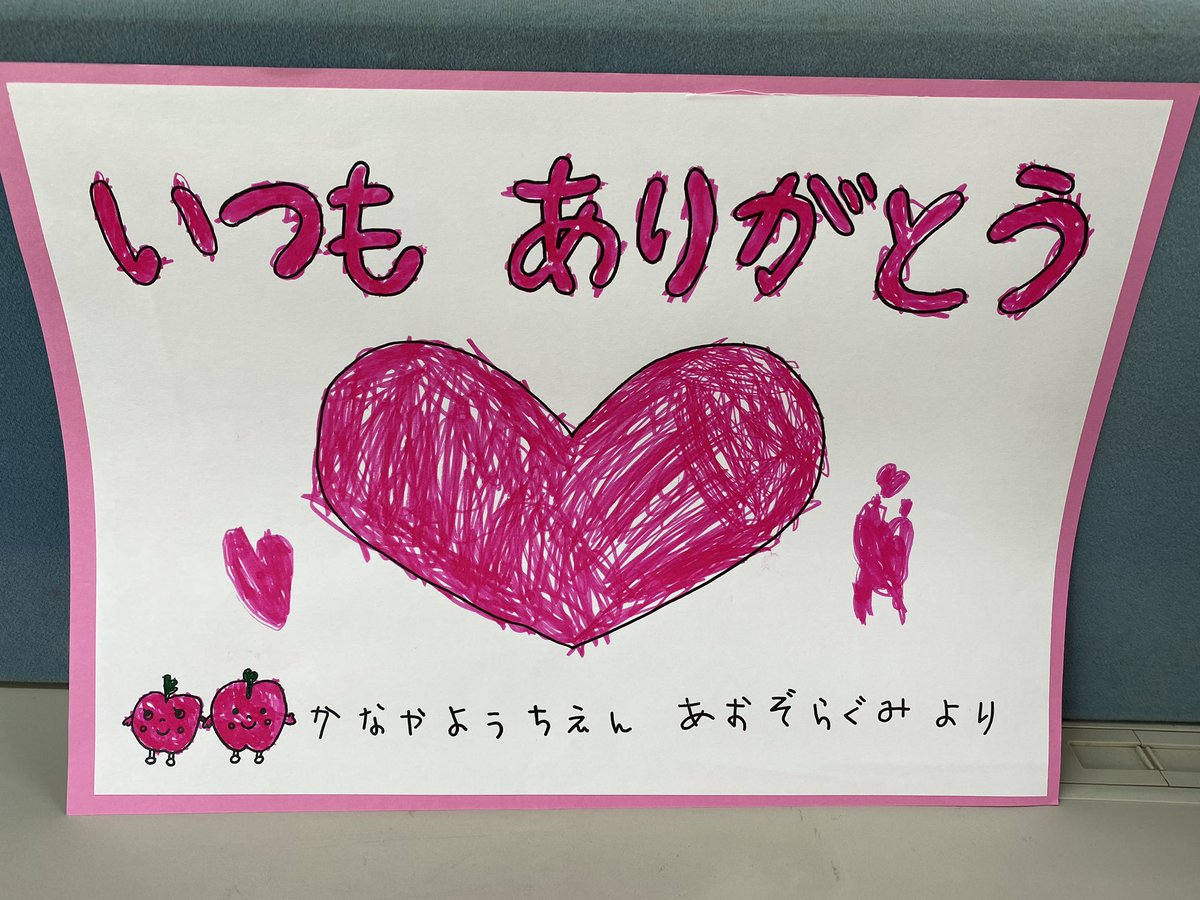 いつも ありがとう
かなやようちえん あおぞらぐみより